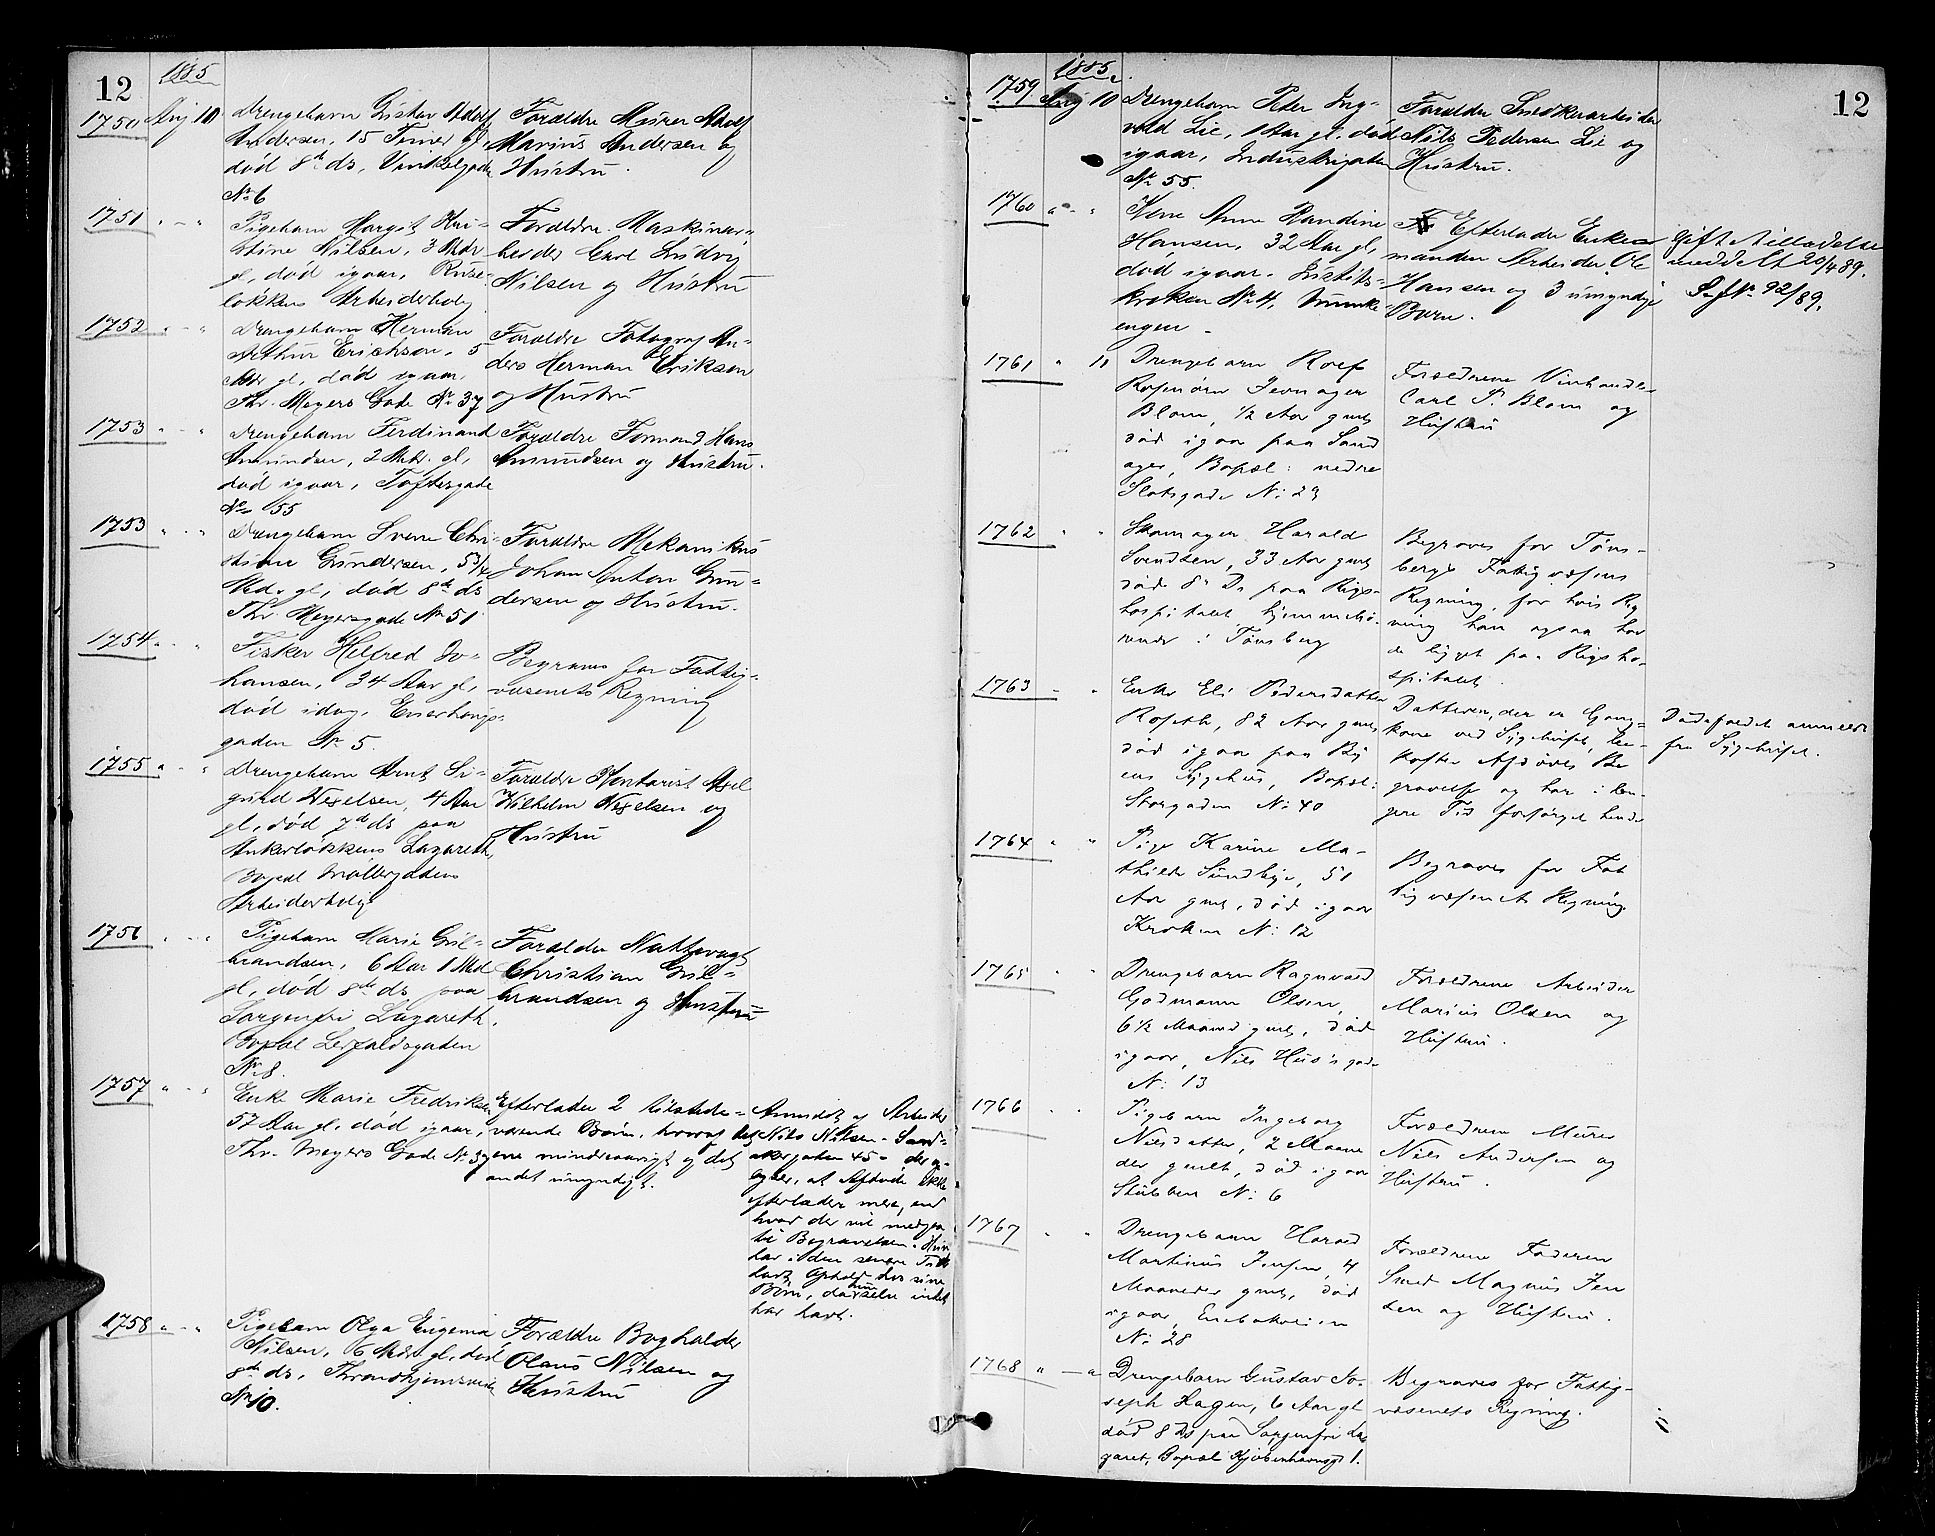 12
1885
1750 Aug 10 Drengebarn Gustav Adolf
Andersen, 15 Timer gl,
død 8de ds, Vinkelgaden
No 6
Forældre Murer Adolf
Marius Andersen og
Hustru.
1751 " - "
Pigebarn Margit Kri-
stine Nilsen, 3 Mdr
gl, død igaar, Ruse-
løkken Arbeiderbolig
Forældre. Maskinar-
beider Carl Ludvig
Nilsen og Hustru
1752 " - "
Drengebarn Herman
Arthur Erichsen, 5
Mdr gl, død igaar,
Thv. Meyers Gade No 37
Forældre Fotograf An-
ders Herman Eriksen
og Hustru
1753 " - "
Drengebarn Ferdinand
Amundsen, 2 Mdr. gl,
død igaar, Toftesgade
No 55
Forældre Formand Hans
Amundsen og Hustru.
1753 " - "
Drengebarn Sverre Chri-
stian Gundersen, 5 3/4
Md. gl, død 8de ds
Thv. Meyersgade No 51
Forældre Mekanikus
Johan Anton Gun-
dersen og Hustru.
1754 " - "
Fisker Helfred Jo-
hansen, 34 Aar gl,
død idag, Enerhougs-
gaden No 5.
Begraves for Fattig-
væsenets Regning
1755 " - "
Drengebarn Arnt Si-
gurd Wexelsen, 4 Aar
gl, død 7de ds paa
Ankerløkkens Lazareth,
Bopæl Møllergadens
Arbeiderbolig
Forældre Kontorist Axel
Wilhelm Wexelsen og
Hustru
1756 " - "
Pigebarn Marie Gul-
brandsen, 6 Aar 1 Md
gl, død 8de ds paa
Sorgenfri Lazareth.
Bopæl Lerfaldsgaden
No 8.
Forældre Nattevagt
Christian Gul-
brandsen og Hustru
1757 " - "
Enke Marie Fredriksen
57 Aar gl, død igaar,
Thv. Meyers Gade No 37
Efterlader 2 tilstede-
værende Børn, hvoraf det
ene mindreaarigt og det
andet umyndigt.
Anmeldt af Arbeider
Nils Nilsen - Sand-
akergaden 45 - der op-
gger, at Afdøde ikke
efterlader mere, end
hvad der vil medgaa
til Begravelsen. Hun
har i den senere Tid
havt Ophold hos sine
Børn, da hun selv intet
har havt.
1758 " - "
Pigebarn Olga Eugenia
Nilsen, 6 Mdr. gl, død
8de ds, Throndhjemsveien
No 10.
Forældre Bogholder
Olaus Nilsen og
Hustru
12
1885
1759 Aug 10 Drengebarn Peter Ing-
vald Lie, 1 Aar gl. død
igaar, Industrigaden
No 55.
Forældre Snedkerarbeider
Nils Pedersen Lie og
Hustru.
1760 " - "
Kone Anne Randine
Hansen, 32 Aar gl,
død igaar. Enkits-
kroken No 4, Munke-
engen -
Efterlader Enke-
manden Arbeider Ole
Hansen og 3 umyndige
Børn.
Gift Tilladelse
meddelt 20/4 89.
S. J No. 92/89.
1761 " 11 Drengebarn Rolf
Rosenørn Ivernager
Blom, 1/2 Aar gml
død igaar paa Sand
ager, Bopæl: nedre
Slotsgade No: 29
Forældrene Vinhandler
Carl P. Blom og
Hustru
1762 " "
Skomager Harald
Svendsen, 33 Aar gml
død 8de Ds paa Rigs-
hospitalet hjemmehø-
rende i Tønsberg
Begraves for Tøns-
bergs Fattigvæsens
Regning, for hvis Reg
ning han ogsaa har
de ligget paa Rigsho-
spitalet.
1763 - "
Enke Eli Pedersdatter
Roseth, 82 Aar gml,
død igaar paa By
ens Sygehus, Bopæl:
Storgaden No: 40
Datteren, der er Gang-
kone ved Sygehuset, be-
koster Afdødes Be
gravelse og har i læn-
gere Tid forsørget hende
Dødsfaldet anmeldt
fra Sygehuset.
1764 " "
Pige Karine Ma-
thilde Sundbye, 51
Aar gml, død igaar
Kroken No: 12
Begraves for Fat
tigvæsenets Regning
1765 " "
Drengebarn Ragnvald
Godmann Olsen,
6 1/2 Maaned gml, død
igaar, Nils Hus's gade
No: 13
Forældrene Arbeider
Marius Olsen og
Hustru.
1766 " "
Pigebarn Ingeborg
Nilsdatter, 2 Maane
der gmlt, død igaar
Stubben No: 6
Forældrene Murer
Nils Andersen og
Hustru.
1767 " "
Drengebarn Harald
Martinius Jensen, 4
Maaneder gml, død
igaar,
No: 28
Forældrene Faderen
Smed Magnus Jen
sen og Hustru.
1768 " - "
Drengebarn Gustav Jo-
seph Hagen, 6 Aar gl
død 8 Ds paa Sorgenfri La-
zaret, Bopæl Kjøbenhavnsgd 1.
Begraves for Fattig-
væsenets Regning.